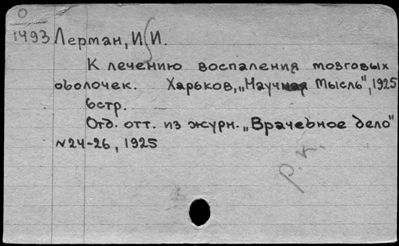 О
1493 Лерман, И. И.
К лечению воспаления мозговых
оболочек. Харьков, „Научная Мысль", 1925
6стр.
Отд. отт. из журн. „Врачебное дело"
№24-26, 1925
р.к.